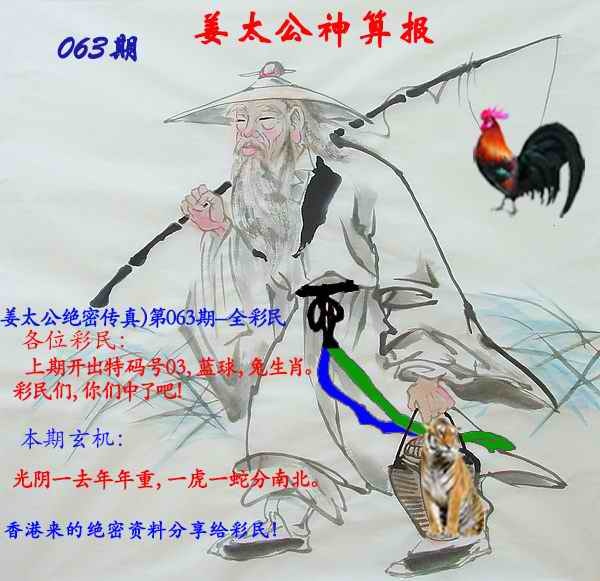 姜太公神算报
063期
姜太公绝密传真)第063期--全彩民
各位彩民:
上期开出特码号03,蓝球,兔生肖。
彩民们,你们中了吧!
本期玄机:
光阴一去年年重,一虎一蛇分南北。
香港来的绝密资料分享给彩民!